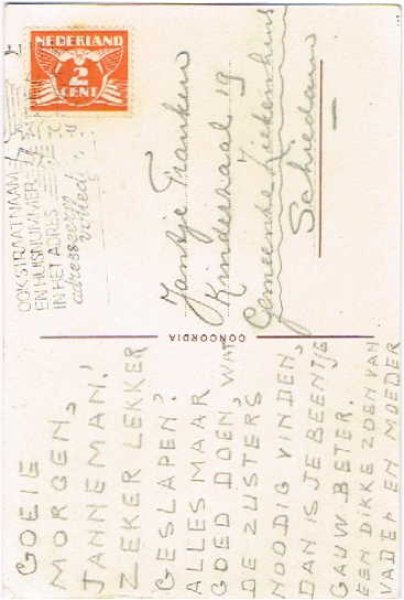 GOEIE
MORGEN,
JANNEMAN!
ZEKER LEKKER
GESLAPEN?
ALLES MAAR
GOED DOEN, WAT
DE ZUSTERS
NOODIG VINDEN,
DAN IS JE BEENTJE
GAUW BETER.
EEN DIKKE ZOEN VAN
VADER EN MOEDER
CONCORDIA
NEDERLAND
2
CENT
OOK STRAATNAAM
EN HUISNUMMER
IN HET ADRES
Jantje Franken
Kinderzaal 19
Gemeente Ziekenhuis
Schiedam